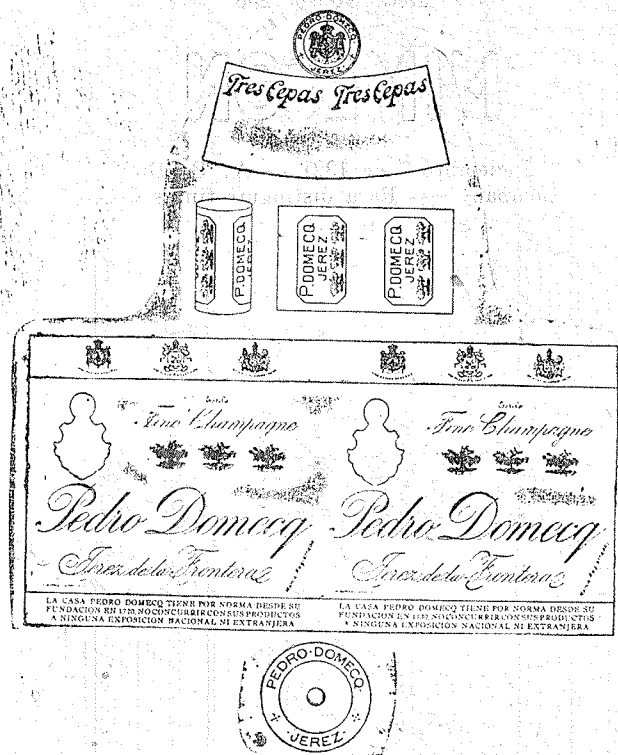 PEDRO·DOMECQ
JEREZ
Tres Cepas Tres Cepas
P. DOMECQ
JEREZ
P. DOMECQ
JEREZ
P. DOMECQ
JEREZ
Fine Champagne
Pedro Domecq
Jerez de la Frontera
LA CASA PEDRO DOMECQ TIENE POR NORMA DESDE SU
FUNDACION EN 1730, NO CONCURRIR CON SUS PRODUCTOS
A NINGUNA EXPOSICION NACIONAL NI EXTRANJERA
Fine Champagne
Pedro Domecq
Jerez de la Frontera
LA CASA PEDRO DOMECQ TIENE POR NORMA DESDE SU
FUNDACION EN 1730, NO CONCURRIR CON SUS PRODUCTOS
A NINGUNA EXPOSICION NACIONAL NI EXTRANJERA
PEDRO·DOMECQ
JEREZ